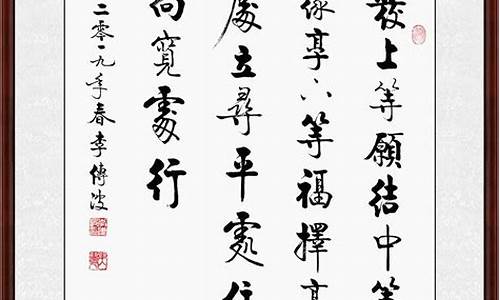 發上等願結中等
緣享下等福擇高
處立尋平處住
向寬處行
二零一九年春李傳波